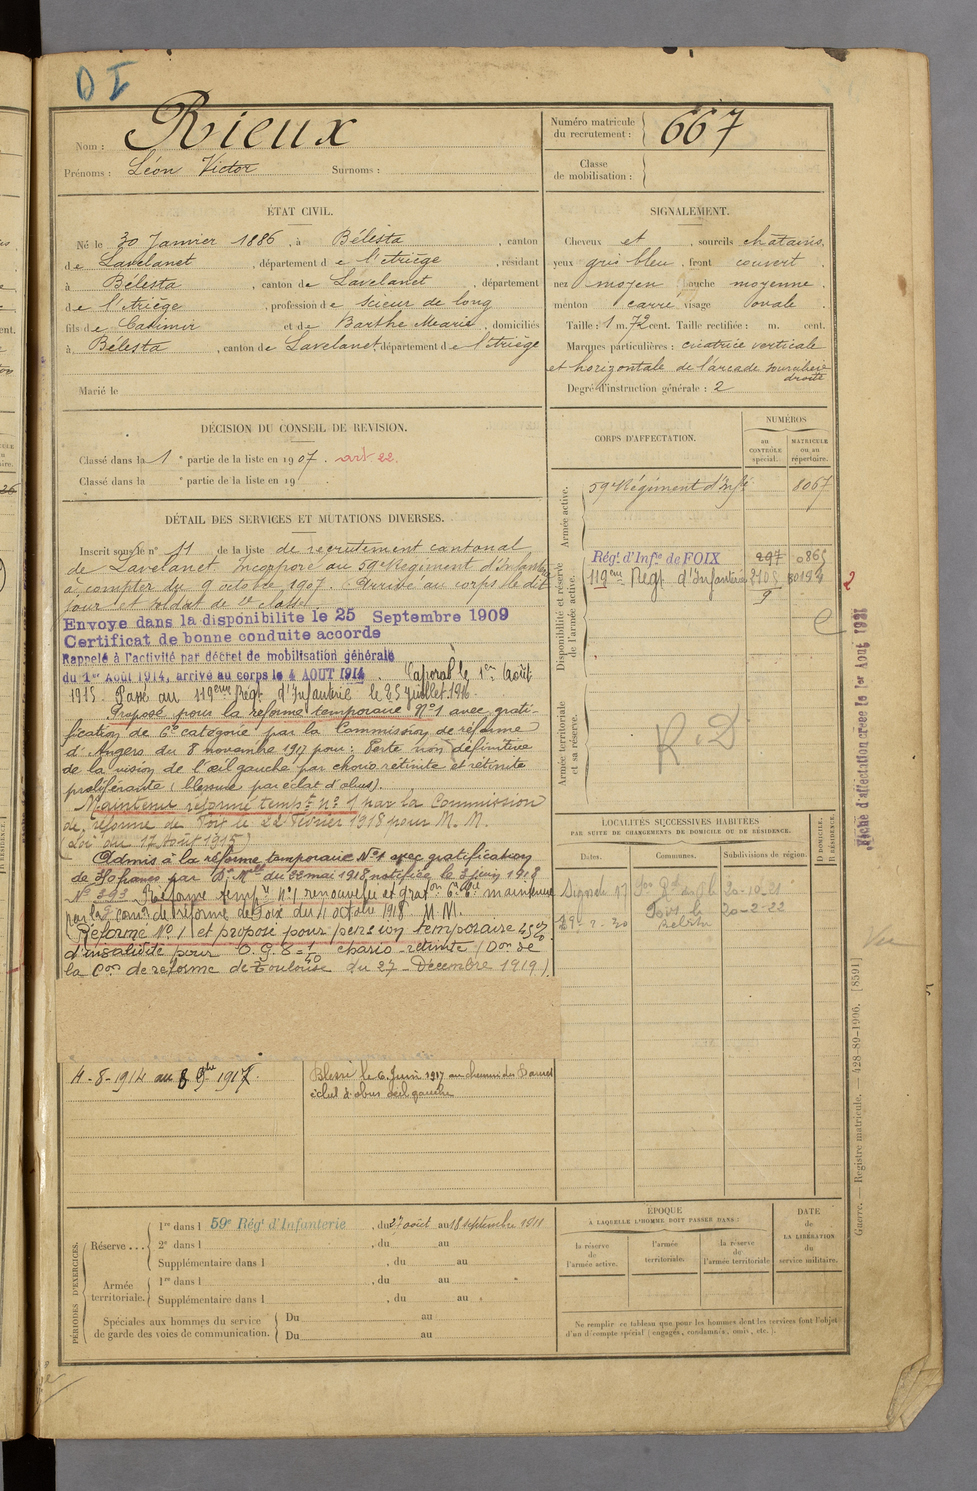 DI
Nom : Rieux
Prénoms : Léon Victor Surnoms :
Numéro matricule du recrutement : 667
Classe de mobilisation :
ÉTAT CIVIL.
Né le 30 Janvier 1886, à Bélesta, canton
de Lavelanet, département de l'Ariège, résidant
à Bélesta, canton de Lavelanet, département
de l'Ariège, profession de Scieur de long
fils de Casimir et de Barthe Marie, domiciliés
à Bélesta, canton de Lavelanet, département de l'Ariège
Marié le
SIGNALEMENT.
Cheveux et, sourcils châtains,
yeux gris bleu, front couvert
nez moyen bouche moyenne.
menton carré visage ovale
Taille : 1 m. 72 cent. Taille rectifiée : m. cent.
Marques particulières : cicatrice verticale
et horizontale de l'arcade sourcilière
droite
Degré d'instruction générale : 2
DÉCISION DU CONSEIL DE REVISION.
Classé dans la 1e partie de la liste en 1907. art 22.
Classé dans la e partie de la liste en 19 .
DÉTAIL DES SERVICES ET MUTATIONS DIVERSES.
Inscrit sous le n° 11 de la liste de recrutement cantonal
de Lavelanet. Incorporé au 59e Régiment d'Infanterie
à compter du 9 octobre 1907. Arrivé au corps le dit
jour et soldat de 2e classe.
Envoyé dans la disponibilité le 25 Septembre 1909
Certificat de bonne conduite accordé
Rappelé à l'activité par décret de mobilisation générale
du 1er Août 1914, arrivé au corps le 4 AOUT 1914. Caporal le 1er Août
1915. Passé au 119ème Régt d'Infanterie le 25 Juillet 1916.
Proposé pour la réforme temporaire N°1 avec grati-
fication de 6e catégorie par la Commission de réforme
d'Angers du 8 novembre 1917 pour : Perte non définitive
de la vision de l'œil gauche par chorio rétinite et rétinite
proliférante (blessure par éclat d'obus).
Maintenu réformé tempre n° 1 par la Commission
de réforme de Foix le 22 Février 1918 pour M. M.
(Loi du 17 Août 1915)
Admis à la réforme temporaire N°1 avec gratification
de 30 francs par Dn Mlle du 22 mai 1918 notifiée le 3 juin 1918
N° 393 Réforme tempre n°1 renouvelée et graton 6e Cie maintenue
par la comon de réforme de Foix du 11 octobre 1918. M. M.
Réforme N° 1 et proposé pour pension temporaire 25%
d'invalidité pour O. G. chorio-retinite (Don de
la Con de réforme de Toulouse du 27 Décembre 1919).
4-8-1914 au 8 9bre 1917.
Blessé le 6 Juin 1917 au chemin des Dames
éclat d'obus œil gauche
CORPS D'AFFECTATION.
NUMÉROS
au CONTRÔLE spécial.
MATRICULE ou au répertoire.
Armée active.
59e Régiment d'Infie 8067
Disponibilité et réserve de l'armée active.
Régt d'Infie de FOIX 297 0865
119ème Régt d'Infanterie
2
Armée territoriale et sa réserve.
R. D
LOCALITÉS SUCCESSIVES HABITÉES
PAR SUITE DE CHANGEMENTS DE DOMICILE OU DE RÉSIDENCE.
Dates. Communes. Subdivisions de région. D DOMICILE. R RÉSIDENCE.
20-10-21
20-2-22
Fiche d'affectation créée le 1er Août 1921
Guerre. — Registre matricule. — 428-89-1906. [8591]
PÉRIODES D'EXERCICES.
Réserve... 1re dans l 59e Régt d'Infanterie, du 27 août au 18 septembre 1911
2e dans l , du au
Supplémentaire dans l , du au
Armée territoriale. 1re dans l , du au
Supplémentaire dans l , du au
Spéciales aux hommes du service de garde des voies de communication. Du au
Du au
ÉPOQUE
À LAQUELLE L'HOMME DOIT PASSER DANS :
la réserve de l'armée active.
l'armée territoriale.
la réserve de l'armée territoriale
DATE de LA LIBÉRATION du service militaire.
Ne remplir ce tableau que pour les hommes dont les services font l'objet
d'un décompte spécial (engagés, condamnés, omis, etc.).